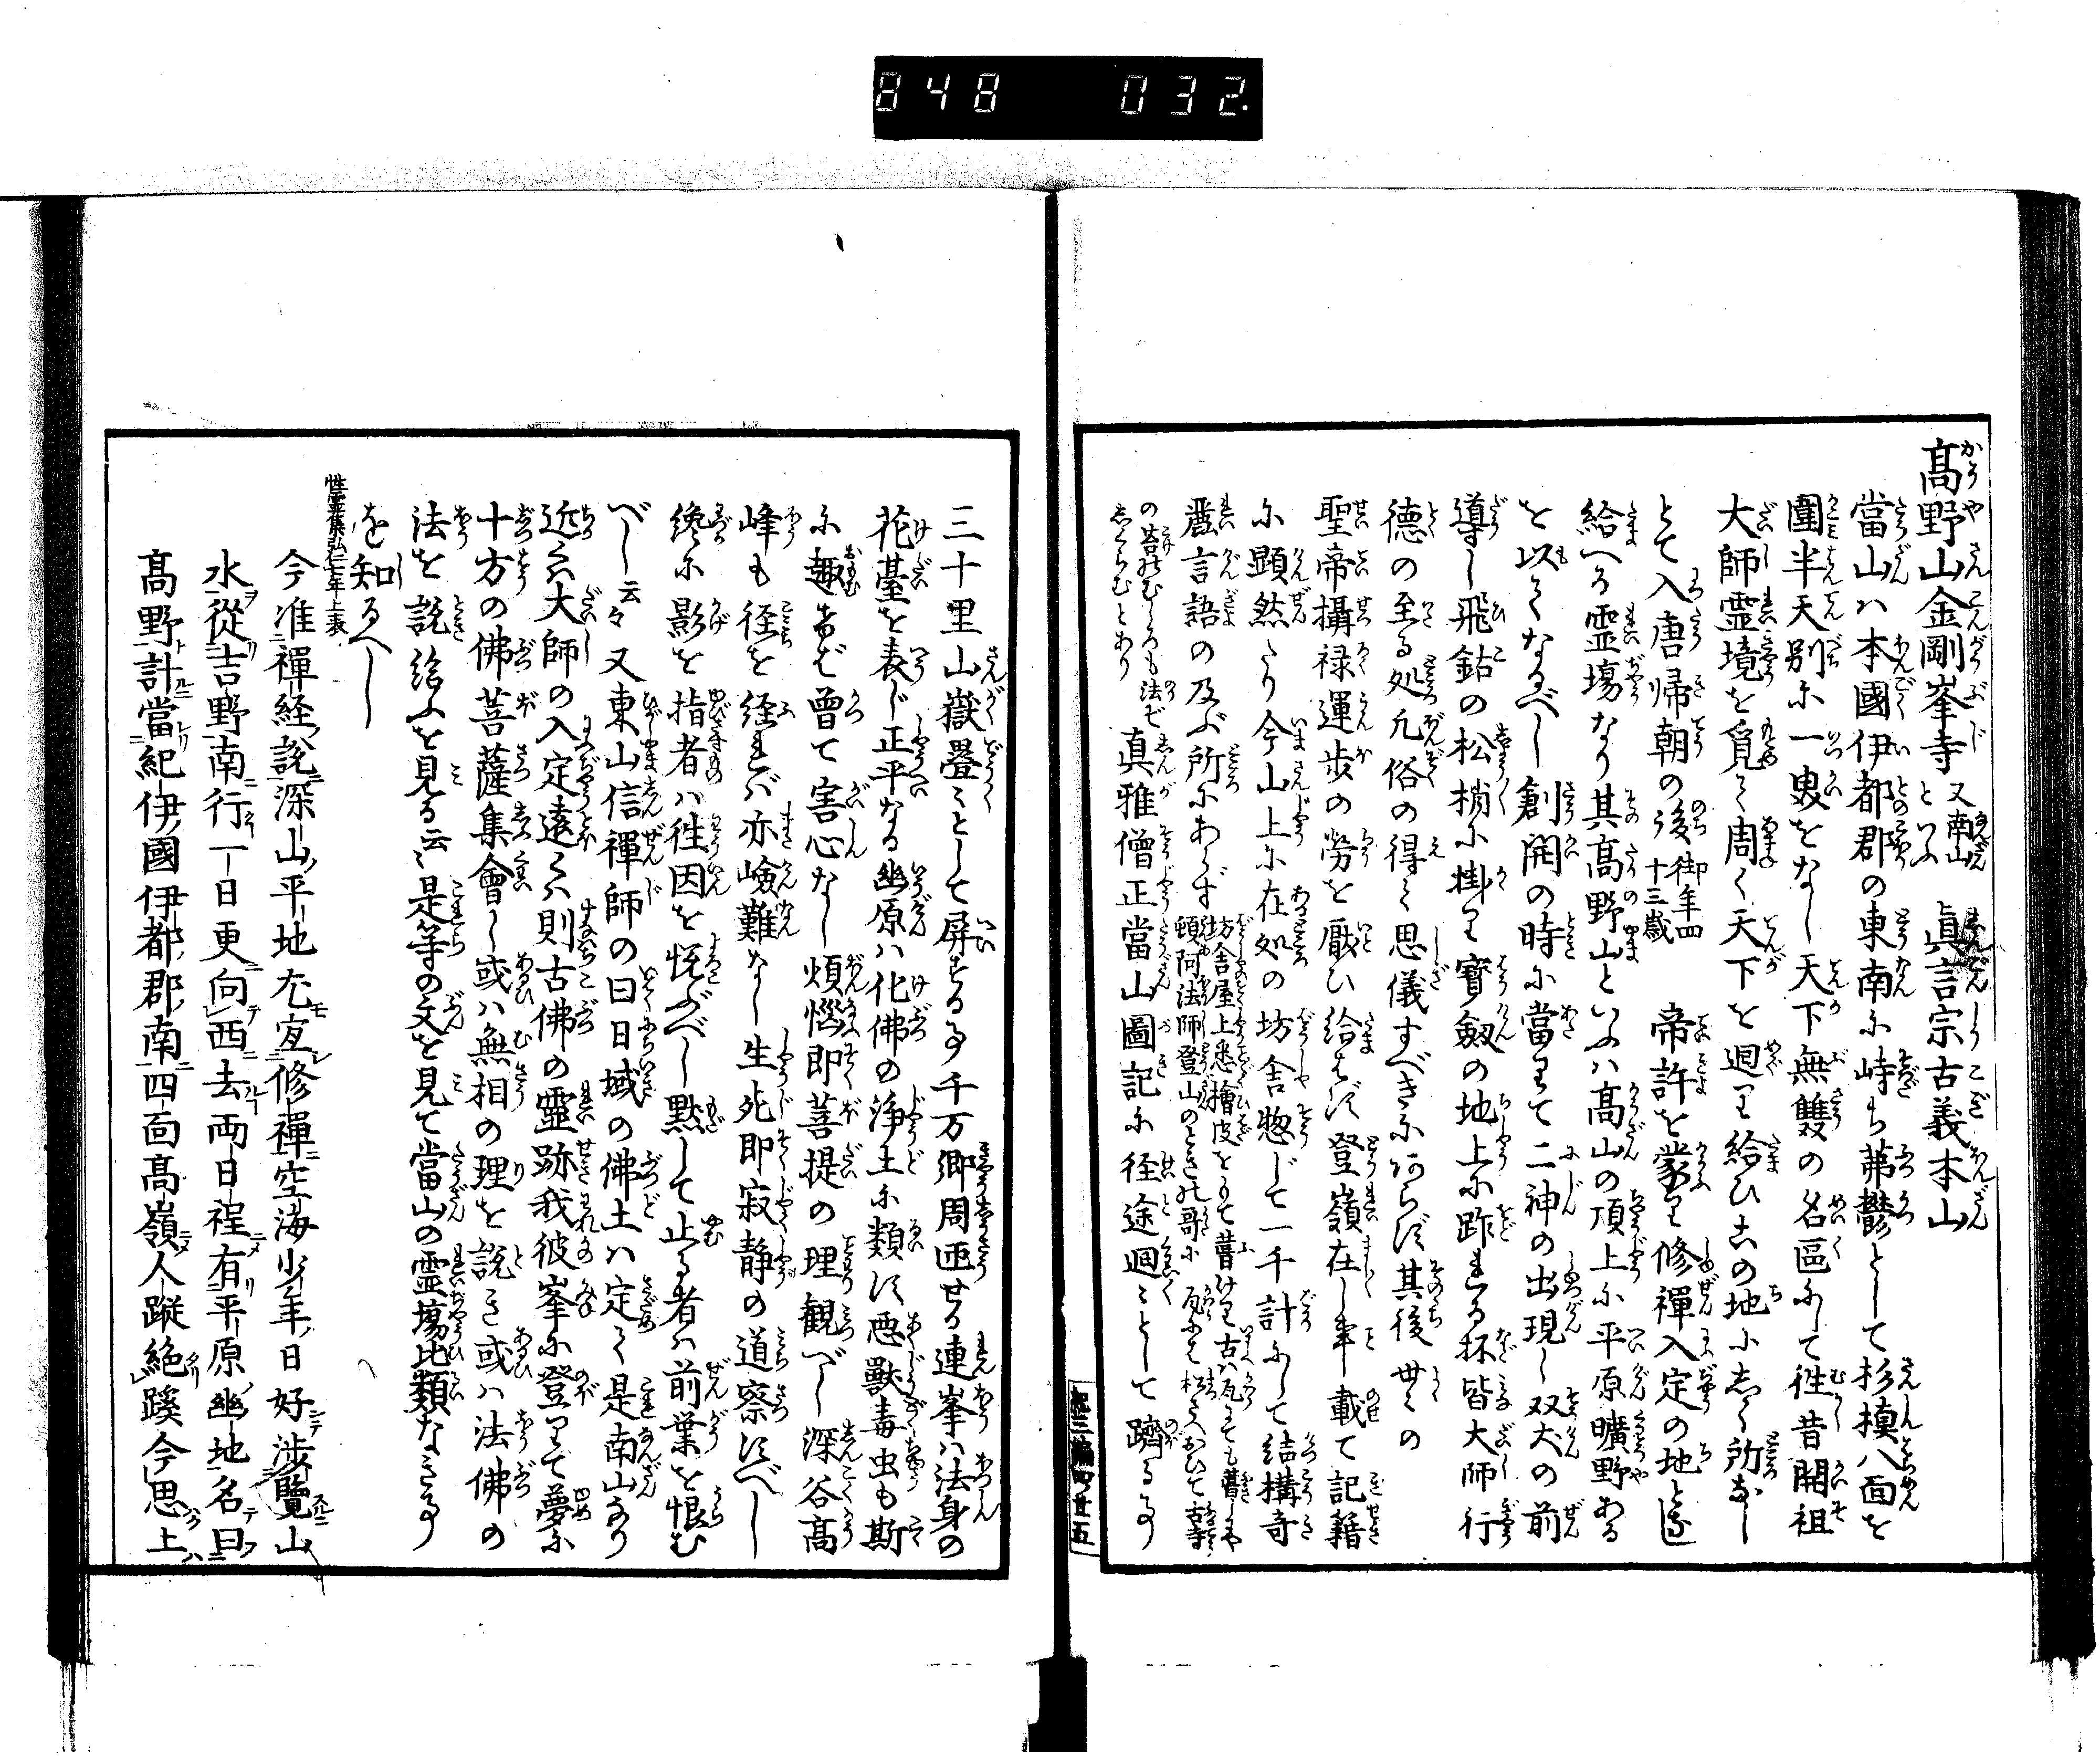 848 032.
高野山金剛峯寺 又南山といふ 眞言宗古義本山
當山ハ本國伊都郡の東南に峙ち茀鬱として杉槙八面を
圍半天別に一寰をなし天下無雙の名區にして徃昔開祖
大師霊境を覓て周く天下を廻り給ひ此の地にしく所なし
とて入唐帰朝の後 御年四十三歳 帝許を蒙り修禪入定の地と
給へる霊塲なり其高野山といふハ高山の頂上に平原曠野ある
を以てなるべし創開の時に當りて二神の出現し双犬の前
導し飛鈷の松梢に掛り寳劔の地上に跡る杯皆大師行
徳の至る処凡俗の得て思儀すべきにあらず其後世々の
聖帝攝禄運歩の勞を厭ひ給はず登嶺在し事載て記籍
に顕然たり今山上に在処の坊舎惣じて一千計にして結構奇
麗言語の及ぶ所にあらず 坊舎屋上悉檜皮をもて葺けり古ハ瓦にても葺しや 頓阿法師登山のときの哥に 瓦にも松さへおひて古寺
の苔のむしろも法ぞしくらむとあり 真雅僧正當山圖記に径途廻〻として躋る事
起三編四ノ廿五
三十里山嶽疊〻として屏する事千万郷周匝せる連峯ハ法身の
花䑓を表じ正平なる幽原ハ化佛の浄土に類ず悪獸毒虫も斯
に趣きぞ曾て害心なし煩惱即菩提の理観べし深谷高
峰も径を経れバ亦嶮難なし生死即寂静の道察ずべし
纔に影を指者ハ徃因を怳ぶべし黙して止る者ハ前業を恨む
べし云々又東山信禪師の曰日域の佛土ハ定て是南山なり
近くハ大師の入定遠くハ則古佛の靈跡我彼峯に登りて夢に
十方の佛菩薩集會し或ハ無相の理を説き或ハ法佛の
法を説給ふを見る云〻是等の文を見て當山の霊塲比類なき事
を知るべし
性霊集弘仁七年上表
今准禪経説深山平地尤宜修禪空海少年日好渉覽山
水從吉野南行一日更向西去両日程有平原幽地名曰
高野計當紀伊國伊都郡南四面高嶺人蹤絶蹊今思上